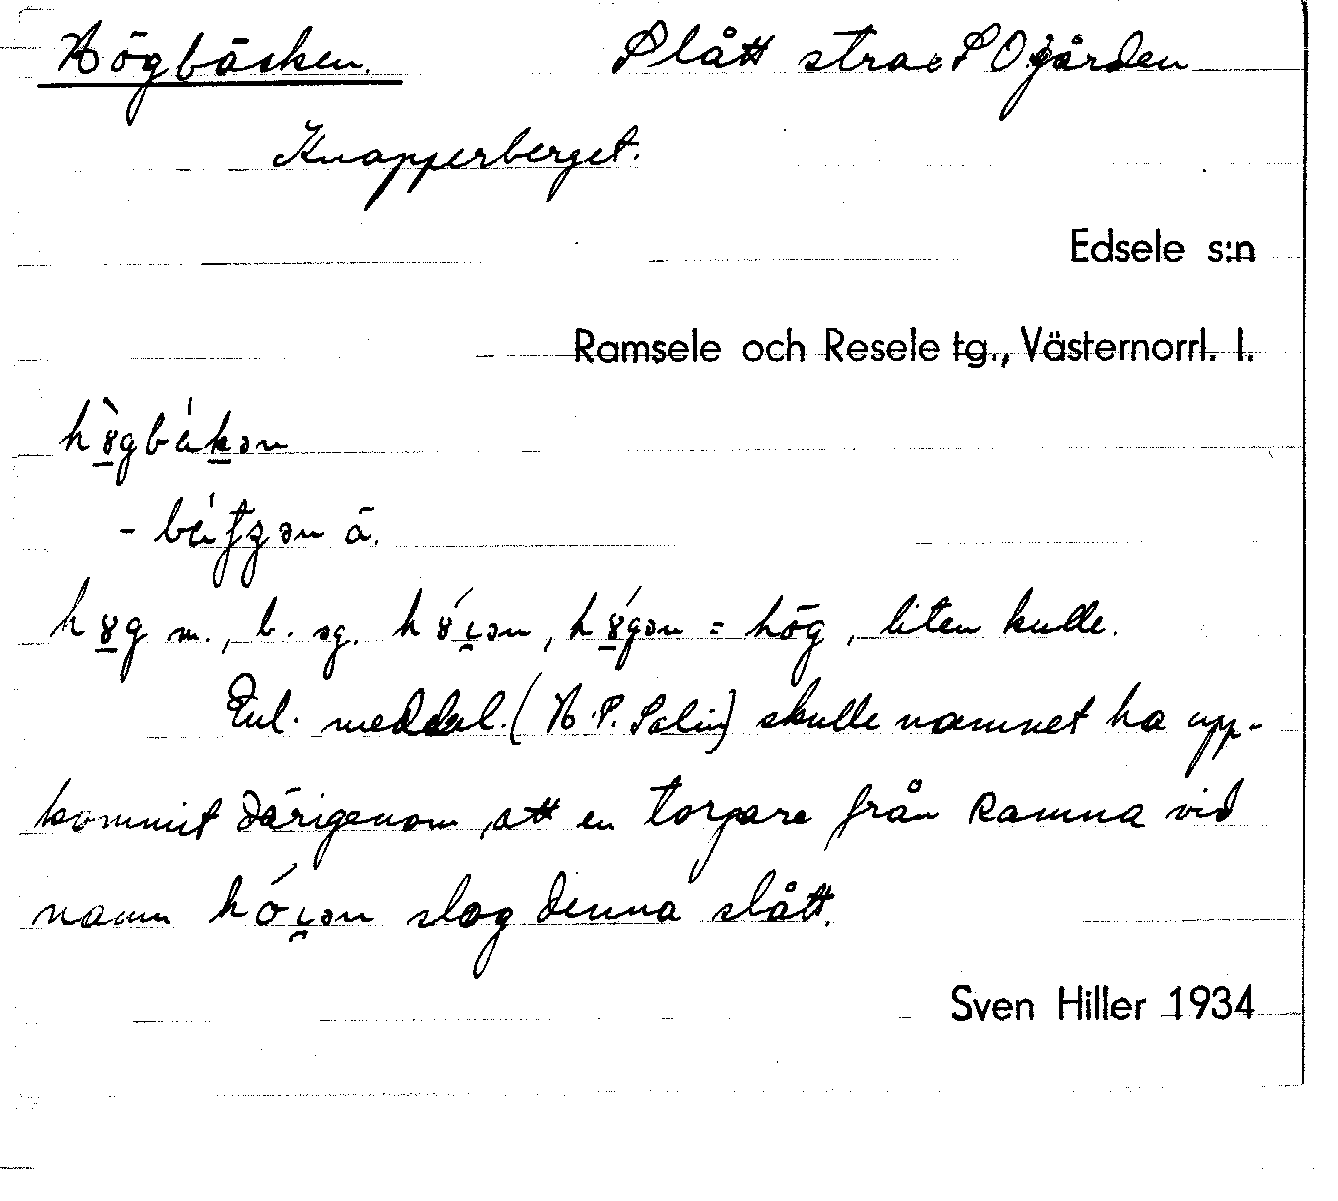 Högbäcken. Slått strax SO gården
Knapperberget.
Edsele s:n
Ramsele och Resele tg., Västernorrl. l.
- ā.
m., b. sg. = hög, liten kulle.
Enl. meddel. (H.P. Salin) skulle namnet ha upp-
kommit därigenom, att en torpare från Ramna vid
namn slog denna slått.
Sven Hiller 1934